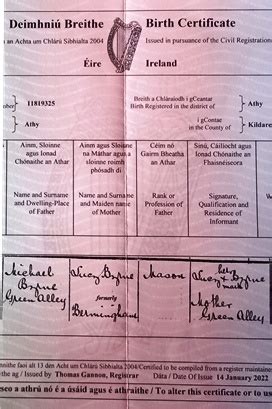 Deimhniú Breithe
Birth Certificate
an Achta um Chlárú Sibhialta 2004
Issued in pursuance of the Civil Registration
Éire
Ireland
11819325
Breith a Chláraíodh i gCeantar
Birth Registered in the district of
Athy
Athy
i gContae
in the County of
Kildare
Ainm, Sloinne
agus Ionad
Chónaithe an
Athar
Name and Surname
and Dwelling-Place
of Father
Ainm agus Sloinne
na Máthar agus a
sloinne roimh
phósadh di
Name and Surname
and Maiden name
of Mother
Céim nó
Gairm Bheatha
an Athar
Rank or
Profession of
Father
Síniú, Cáilíocht agus
Ionad Chónaithe an
Fhaisnéiseora
Signature,
Qualification and
Residence of
Informant
Michael
Byrne
Green Alley
Lucy Byrne
formerly
Bermingham
Mason
her
Lucy x Byrne
mark
Mother
Green Alley
faoi alt 13 den Acht um Chlárú Sibhialta 2004/Certified to be compiled from a register maintained
ag / Issued by Thomas Gannon, Registrar
Dáta / Date Of Issue 14 January 2022
seo a athrú nó é a úsáid agus é athraithe / To alter this certificate or to use